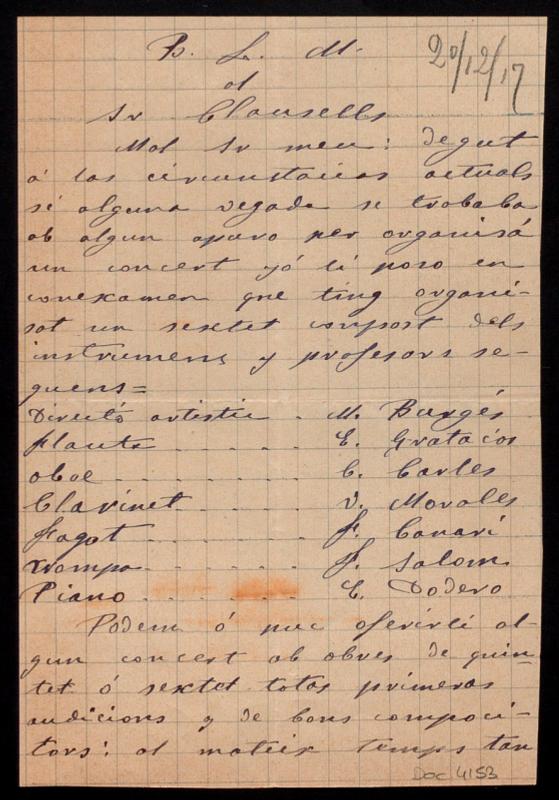 B. L. M.
20/12/17
al
Sr Clausells
Mol Sr meu: degut
á las circunstacias actuals
sí alguna vegada se trobaba
ab algun apuro per organisá
un concert yó li poso en
conexamen que ting organi-
sat un sextet compost dels
instrumens y profesors se-
guens=
Directó artistic . M. Burgés
flauta . . . . . E. Gratacós
oboe . . . . . . C. Carles
Clarinet . . . . V. Morales
fagot . . . . . . F. Canari
trompa . . . . . F. Salom
Piano . . . . . . E. Dodero
Podem ó puc oferirli al-
gun concert ab obres de quin-
tet ó sextet totas primeras
audicions y de bons compoci-
tors: al mateix temps tan
Doc 4153